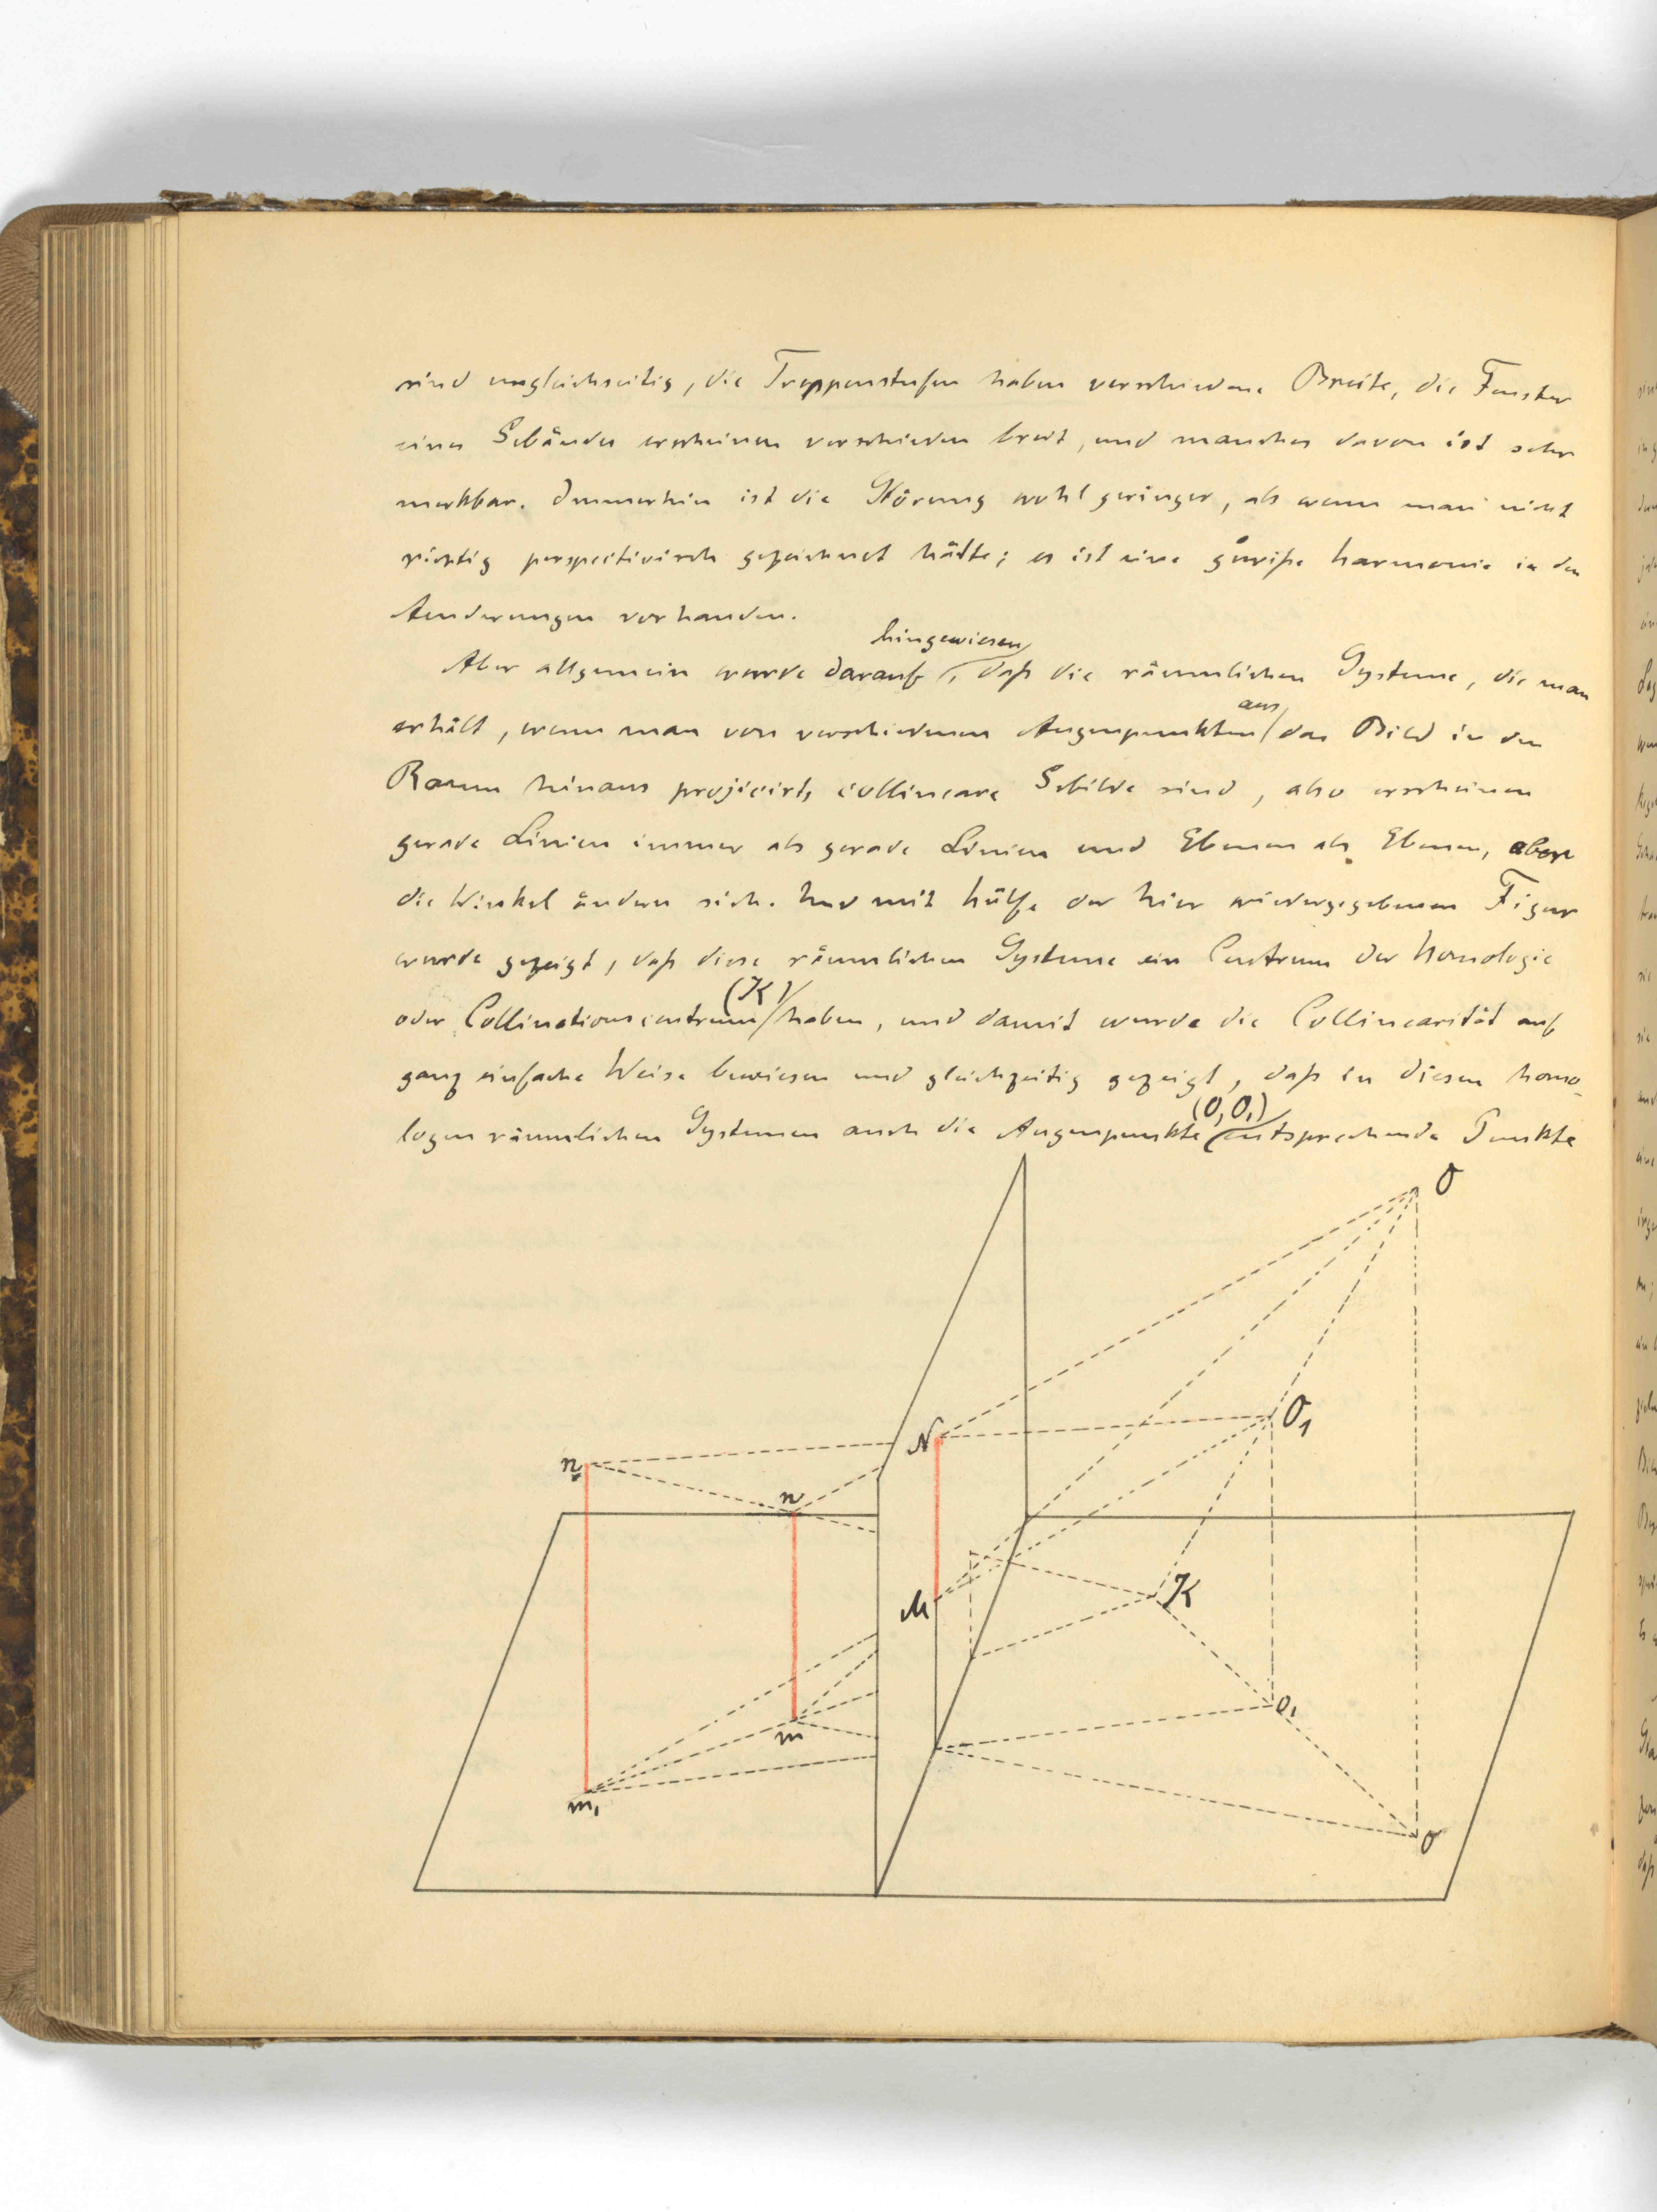 sind ungleichseitig, die Treppenstufen haben verschiedene Breite, die Fenster
eines Gebäudes erscheinen verschieden breit, und manches davon ist sehr
merkbar. Immerhin ist die Störung wohl geringer, als wenn man nicht
richtig perspectivisch gezeichnet hätte; es ist eine gewiße Harmonie in den
Aenderungen vorhanden.
hingewiesen
Aber allgemein wurde darauf, daß die räumlichen Systeme, die man
aus
erhält, wenn man von verschiedenen Augenpunkten das Bild in den
Raum hinaus projicirt, collineare Gebilde sind, also erscheinen
gerade Linien immer als gerade Linien und Ebenen als Ebenen, aber
die Winkel ändern sich. Und mit Hülfe der hier wiedergegebenen Figur
wurde gezeigt, daß diese räumlichen Systeme ein Centrum der Homologie
(K)
oder Collineationscentrum haben, und damit wurde die Collinearität auf
ganz einfache Weise bewiesen und gleichzeitig gezeigt, daß in diesen homo-
(O, O₁)
logen räumlichen Systemen auch die Augenpunkte entsprechende Punkte
O
O₁
N
n₁
n
K
M
o₁
m
m₁
o